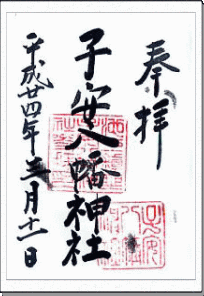 奉拝
子安八幡神社
平成廿四年三月十一日